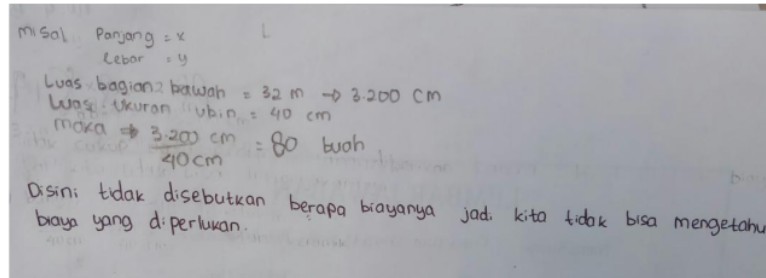 misal Panjang = x
Lebar = y
Luas bagian2 bawah = 32 m → 3.200 cm
Luas ukuran ubin = 40 cm
maka → 3.200 cm = 80 buah
40 cm
Disini tidak disebutkan berapa biayanya jadi kita tidak bisa mengetahu
biaya yang diperlukan.